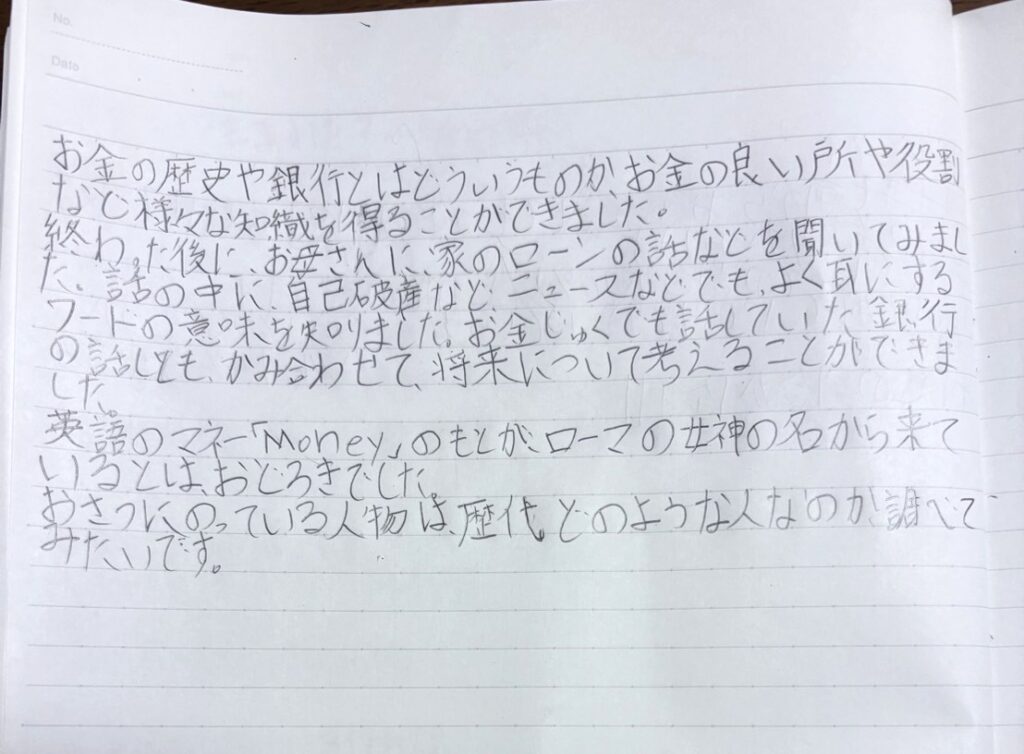 No.
Date
お金の歴史や銀行とはどういうものか、お金の良い所や役割
など様々な知識を得ることができました。
終わった後に、お母さんに、家のローンの話などを聞いてみまし
た。話の中に、自己破産など、ニュースなどでも、よく耳にする
ワードの意味を知りました。お金じゅくでも話していた銀行
の話しとも、かみ合わせて、将来について考えることができま
した。
英語のマネー「Money」のもとが、ローマの女神の名から来て
いるとは、おどろきでした。
おさつにのっている人物は、歴代、どのような人なのか、調べて
みたいです。